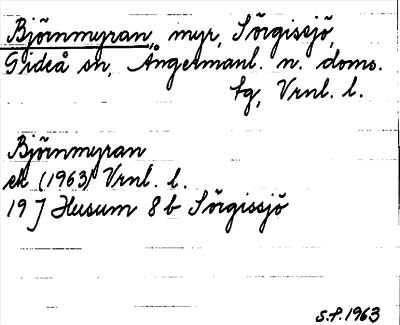 Björnmyran, myr, Sörgissjö,
Gideå sn, Ångermanl. n. doms.
tg, Vrnl. l.
Björnmyran
ek (1963) Vrnl. l.
19 J Husum 8 b Sörgissjö
S.F. 1963